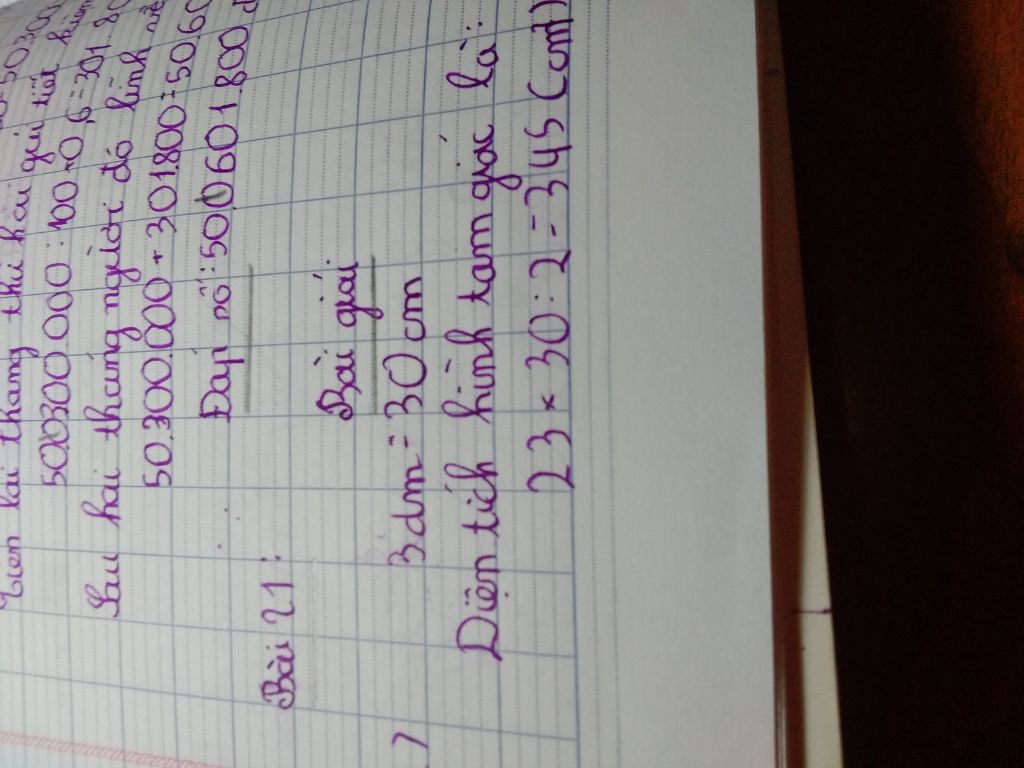 Tiền lãi tháng thứ hai gửi tiết kiệm
50.300.000 : 100 × 0,6 = 301.80
Sau hai tháng người đó lĩnh về
50.300.000 + 301.800 = 5060
Đáp số: 50.601.800 đ
Bài 21:
Bài giải
3dm = 30 cm
Diện tích hình tam giác là:
23 × 30 : 2 = 345 (cm²)